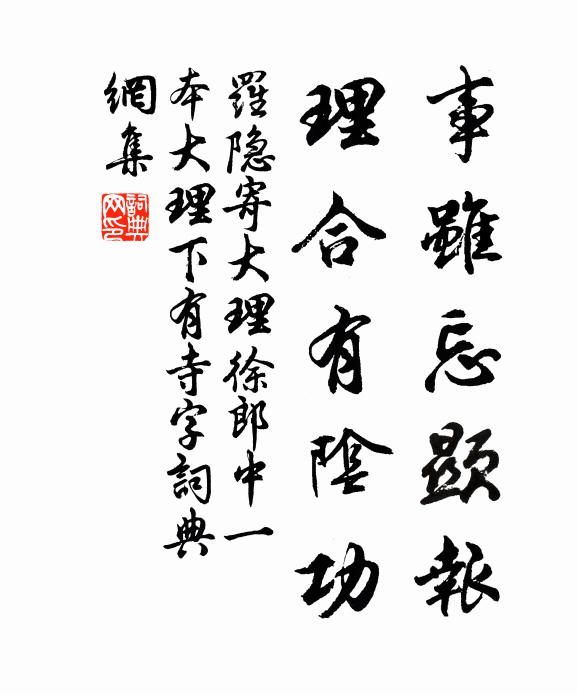 事雖忘顯報
理合有陰功
羅隐寄大理徐郎中一
本大理下有寺字詞典
網集
詞典
网印